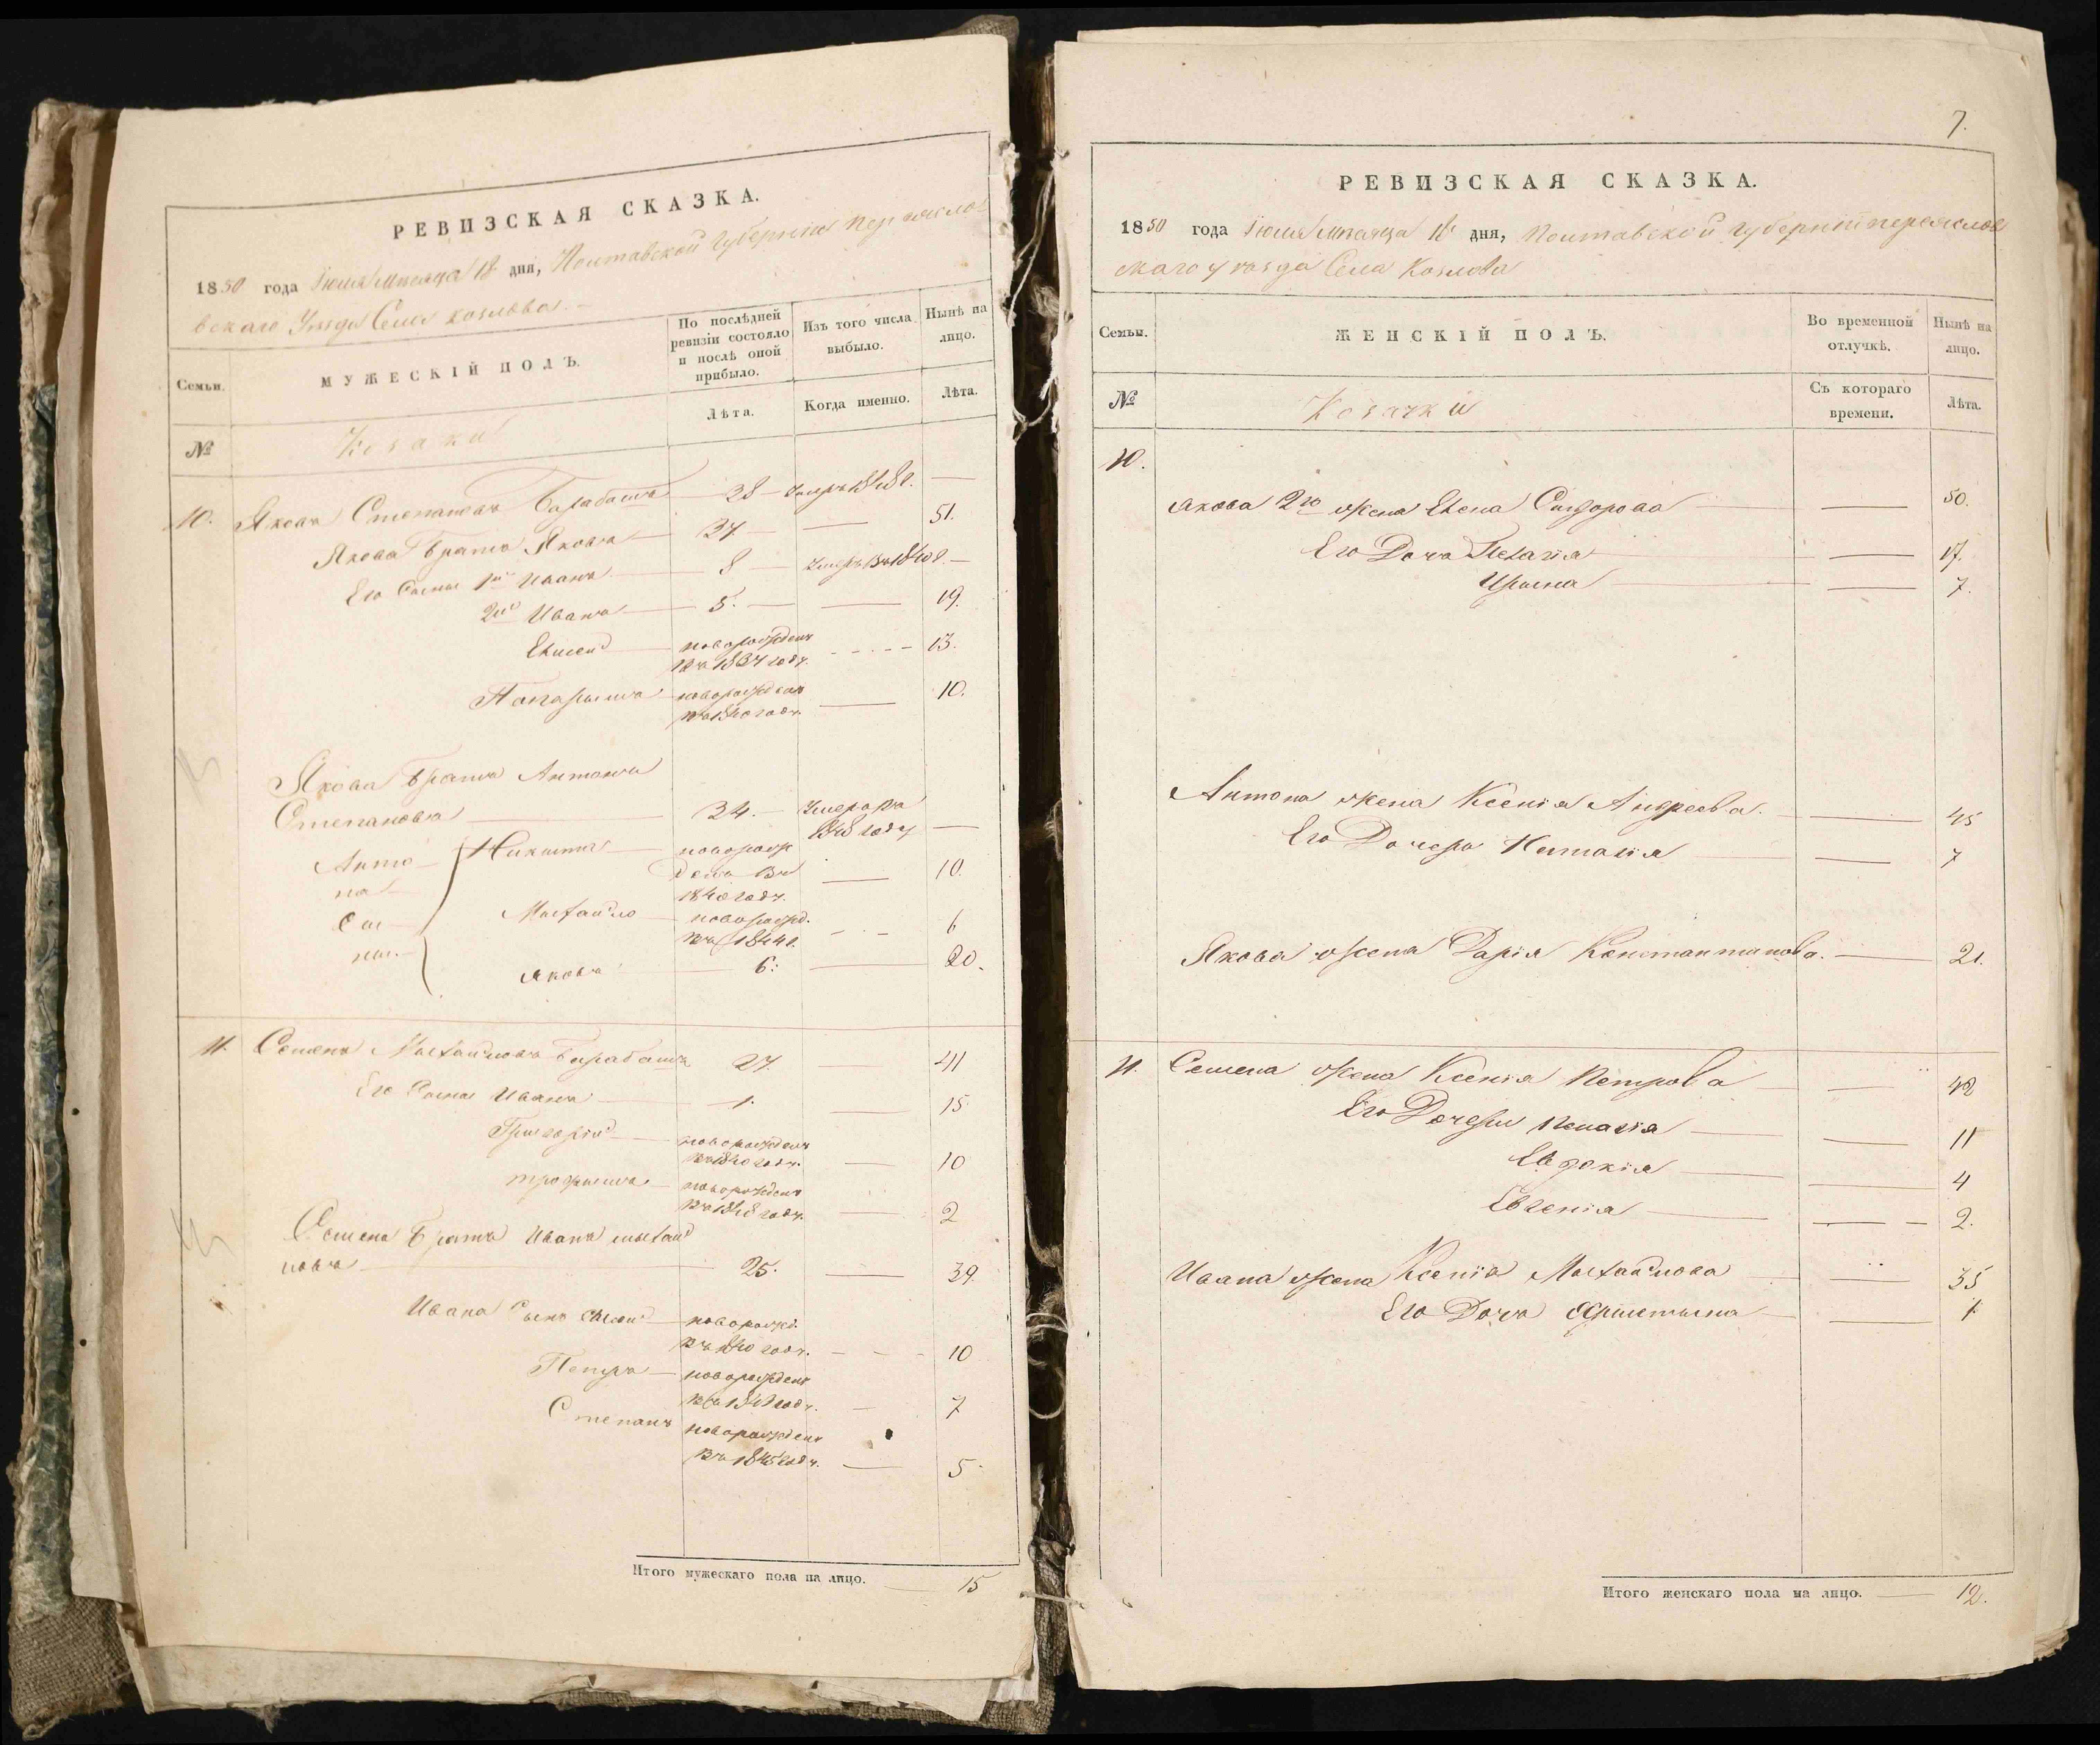 РЕВИЗСКАЯ СКАЗКА.
1850 года Іюля Мѣсяца 18 дня, Полтавской Губерніи Переясло-
вскаго Уѣзда Села Козлова.
Семьи.
МУЖЕСКІЙ ПОЛЪ.
По послѣдней ревизіи состояло и послѣ оной прибыло.
Изъ того числа выбыло.
Нынѣ на лицо.
№
Козаки
Лѣта.
Когда именно.
Лѣта.
10. Яковъ Степановъ Барабашъ — 28 — умеръ 1848 г. —
Якова братъ Яковъ — 37. — 51.
Его Сыны 1й Иванъ — 8 — Умеръ въ 1840 г. —
2й Иванъ — 5. — 19.
Елисей — новорожденъ
въ 1837 году. - - - - 13.
Парфенъ — новорожденъ
въ 1840 году. — 10.
Якова братъ Антонъ
Степановъ — 34. — Умеръ въ
1848 году —
Анто-
на
Сы-
ны.
Никита — новорож
денъ въ
1840 году. — 10.
Михайло — новорожд.
въ 1844 г. - - - 6
Яковъ — 6. — 20.
11. Семенъ Михайловъ Барабашъ 27. 41
Его Сыны Иванъ — 1. — 15.
Григорій — новорожденъ
въ 1840 году. — 10
Трофимъ — новорожденъ
въ 1848 году. — 2
Семена братъ Иванъ Михай
ловъ — 25. — 39.
Ивана Сынъ — новорожд.
въ 1840 году. - - - 10
Петръ — новорожденъ
въ 1843 году. — 7
Степанъ новорожденъ
въ 1845 году. — 5
Итого мужескаго пола на лицо. — 15
7.
РЕВИЗСКАЯ СКАЗКА.
1850 года Іюля Мѣсяца 18 дня, Полтавской Губерніи Переяслов
скаго уѣзда Села Козлова
Семьи.
ЖЕНСКІЙ ПОЛЪ.
Во временной отлучкѣ.
Нынѣ на лицо.
№
Козачки
Съ котораго времени.
Лѣта.
10.
Якова 2го жена Елена Сидорова — 50.
Его Дочь Пелагія — 17.
Ирина — 7.
Антона жена Ксенія Андреева. — 45
Его Дочерь Наталія — 7
Якова жена Дарія Константинова. — 21.
11. Семена жена Ксенія Петрова — 42
Его Дочери Пелагія — 11
Евдокія — 4
Евгенія — 2.
Ивана жена Ксенія Михайлова — 35
Его Дочь Христина — 1
Итого женскаго пола на лицо. — 12.